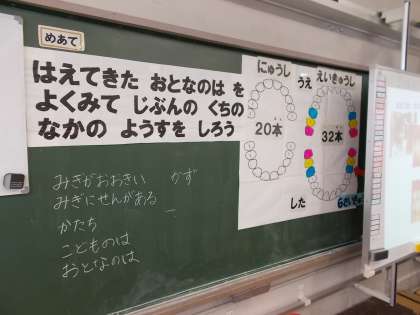 めあて
はえてきた おとなのは を
よくみて じぶんの くちの
なかの ようすを しろう
にゅうし
うえ
えいきゅうし
20本
32本
した
みぎがおおきい かず
みぎにせんがある
かたち
こどものは
おとなのは